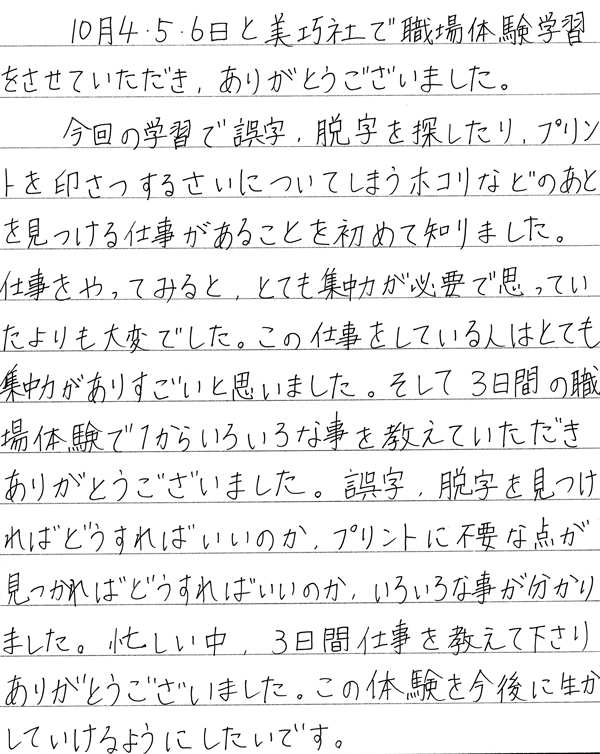 10月4・5・6日と美巧社で職場体験学習
をさせていただき、ありがとうございました。
今回の学習で誤字、脱字を探したり、プリン
トを印さつするさいについてしまうホコリなどのあと
を見つける仕事があることを初めて知りました。
仕事をやってみると、とても集中力が必要で思ってい
たよりも大変でした。この仕事をしている人はとても
集中力がありすごいと思いました。そして3日間の職
場体験で1からいろいろな事を教えていただき
ありがとうございました。誤字、脱字を見つけ
ればどうすればいいのか、プリントに不要な点が
見つかればどうすればいいのか、いろいろな事が分かり
ました。忙しい中、3日間仕事を教えて下さり
ありがとうございました。この体験を今後に生か
していけるようにしたいです。